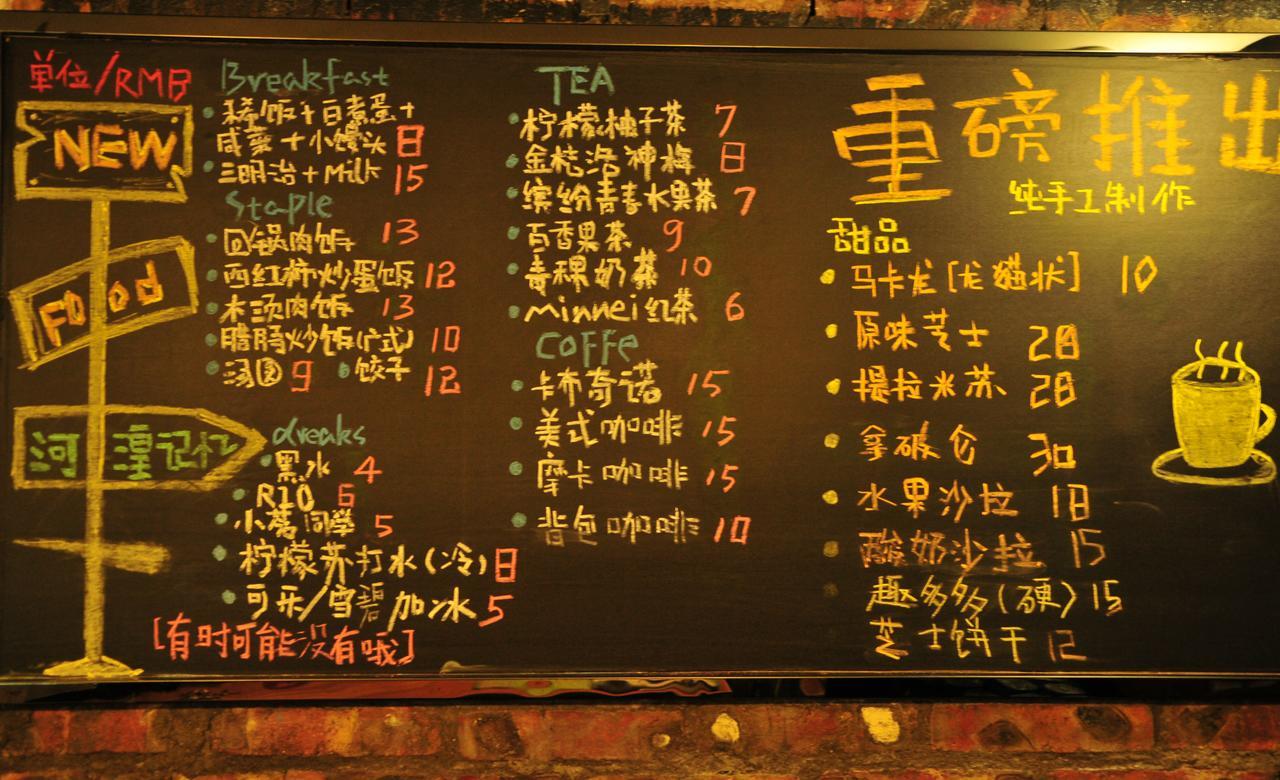 单位/RMB
NEW
Food
河湟记忆
Breakfast
稀饭+白煮蛋+
咸菜+小馒头 8
三明治+Milk 15
Staple
回锅肉饭 13
西红柿炒蛋饭 12
木须肉饭 13
腊肠炒饭(广式) 10
汤圆 9 饺子 12
dreaks
黑水 4
R10 6
小茗同学 5
柠檬苏打水(冷) 8
可乐/雪碧 加冰 5
[有时可能没有哦]
TEA
柠檬柚子茶 7
金桔洛神梅 8
缤纷青春水果茶 7
百香果茶 9
青稞奶茶 10
minnei红茶 6
COFFe
卡布奇诺 15
美式咖啡 15
摩卡咖啡 15
背包咖啡 10
重磅推出
纯手工制作
甜品
马卡龙[龙猫状] 10
原味芝士 28
提拉米苏 28
拿破仑 30
水果沙拉 18
酸奶沙拉 15
趣多多(硬) 15
芝士饼干 12